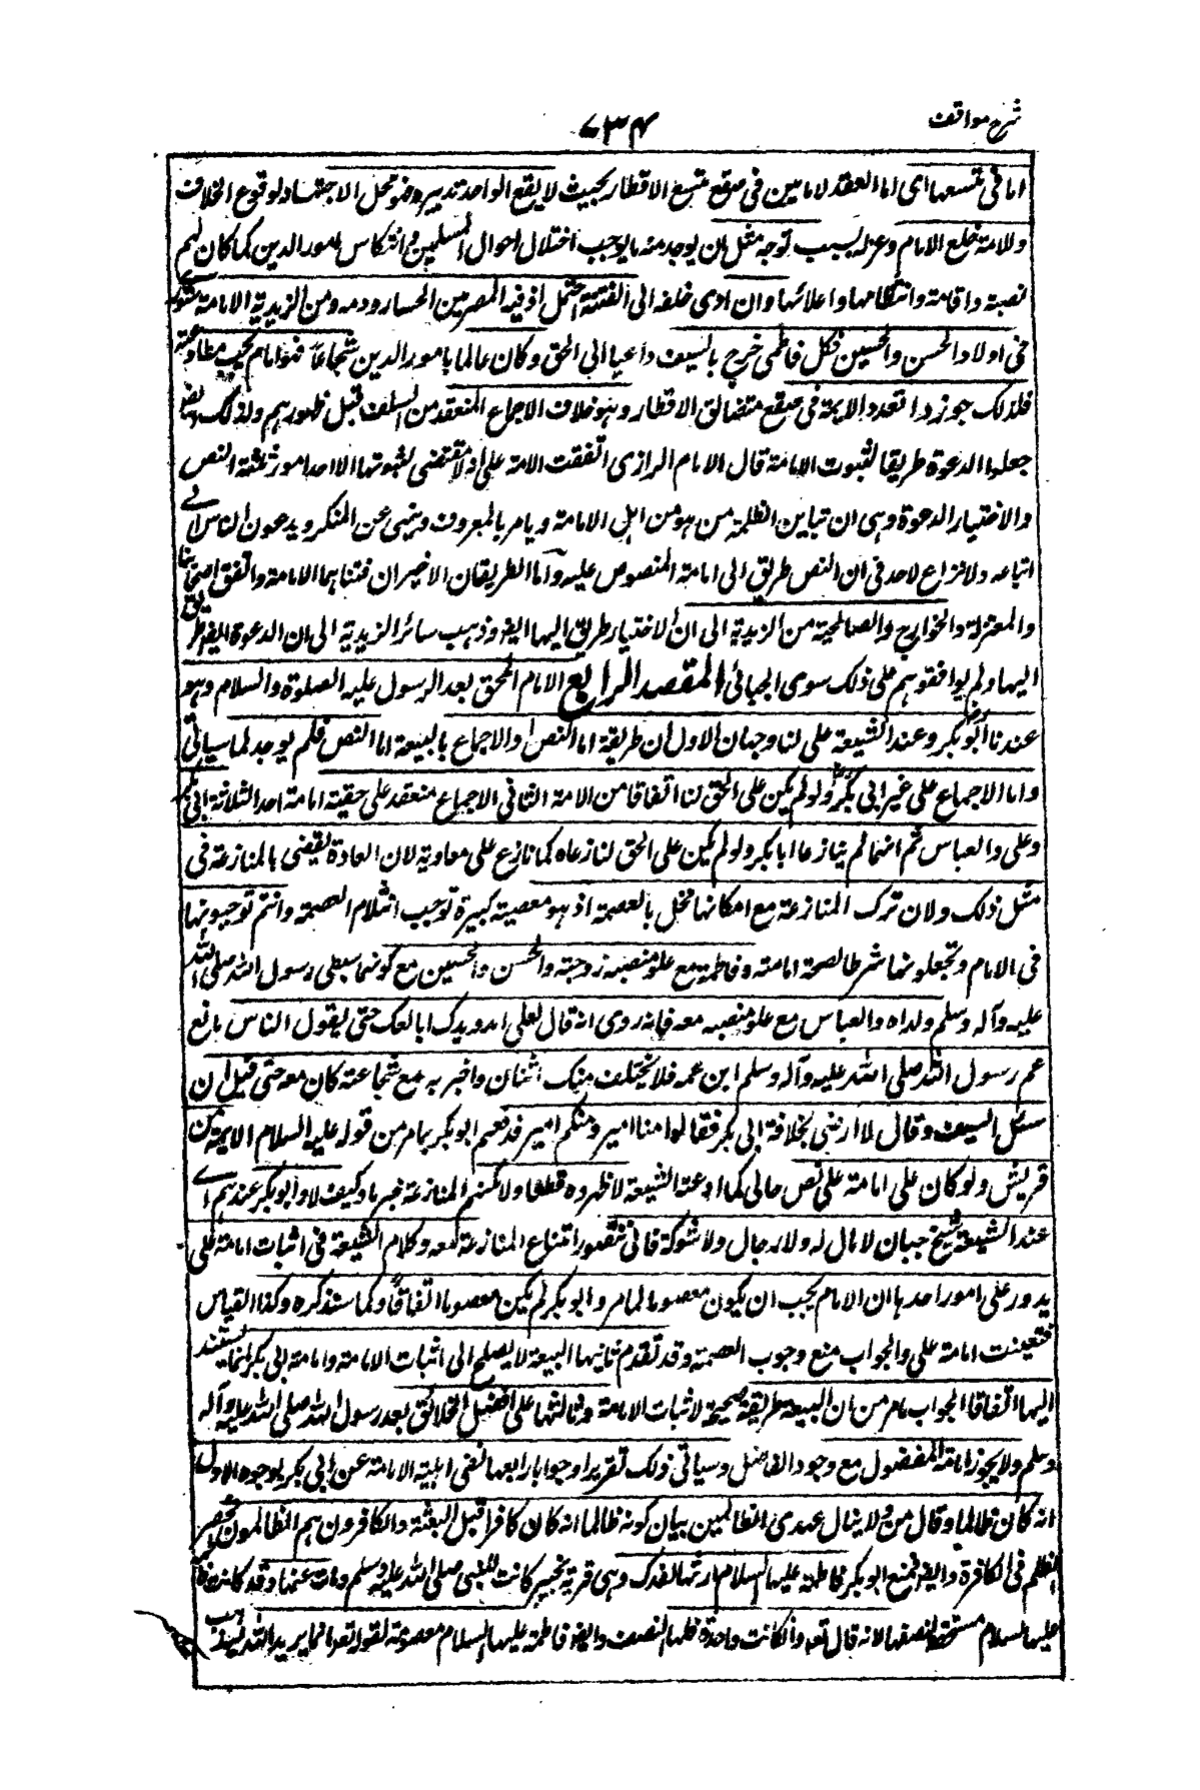 شرح مواقف
٧٣٤
اما فى متسعها اى اما العقد لامامين فى صقع متسع الاقطار بحيث لا يقع الواحد تدبيره فهو محل الاجتهاد لوقوع الخلاف
وللامة خلع الامام وعزله بسبب توجبه مثل ان يوجد منه ما يوجب اختلال احوال المسلمين وانتكاس امور الدين كما كان لهم
نصبه واقامته وانتظامها واعلائها وان ادى خلعه الى الفتنة احتمل ادنى المضرتين الجارودية من الزيدية الامامة شورى
فى اولاد الحسن والحسين فكل فاطمى خرج بالسيف داعيا الى الحق وكان عالما بامور الدين شجاعا فهو امام يجب مطاوعته
فلذلك جوزوا تعدد الايمة فى صقع متضائق الاقطار وهو خلاف الاجماع المنعقد من السلف قبل ظهورهم ولذلك ايضا
جعلوا الدعوة طريقا لثبوت الامامة قال الامام الرازى اتفقت الامة على انه لا مقتضى لثبوتها الا احد امور ثلثة النص
والاختيار الدعوة وهى ان تباين الظلمة من هو من اهل الامامة ويامر بالمعروف وينهى عن المنكر ويدعون الناس الى
اتباعه ولا نزاع لاحد فى ان النص طريق الى امامة المنصوص عليه واما الطريقان الاخيران فنفاهما الامامية واتفق اصحابنا
والمعتزلة والخوارج والصالحية من الزيدية الى ان الاختيار طريق اليها ايضا وذهب سائر الزيدية الى ان الدعوة ايضا طريق
اليها ولم يوافقوهم على ذلك سوى الجبائى المقصد الرابع الامام الحق بعد الرسول عليه الصلوة والسلام وهو
عندنا ابو بكر وعند الشيعة على لنا وجهان الاول ان طريقه اما النص او الاجماع بالبيعة اما النص فلم يوجد لما سياتى
واما الاجماع على غير ابى بكر ولو لم يكن على الحق لنا اتفاقا من الامة الثانى الاجماع منعقد على حقية امامة احد الثلاثة ابى بكر
وعلى والعباس ثم انهما لم ينازعا ابا بكر ولو لم يكن على الحق لنازعاه كما نازع على معاوية لان العادة تقضى بالمنازعة فى
مثل ذلك ولان ترك المنازعة مع امكانها مخل بالعصمة اذ هو معصية كبيرة توجب انثلام العصمة وانتم توجبونها
فى الامام وتجعلونها شرطا لصحة امامته وفاطمة مع علو منصبه زوجته والحسن والحسين مع كونهما سبطى رسول الله صلى الله
عليه وآله وسلم ولداه والعباس مع علو منصبه معه فانه روى انه قال لعلى امدد يدك ابايعك حتى يقول الناس بايع
عم رسول الله صلى الله عليه وآله وسلم ابن عمه فلا يختلف منك اثنان واخبر به مع شجاعته كان معه حتى قيل ان
سل السيف وقال لا ارضى بخلافة ابى بكر فقالوا منا امير ومنكم امير فدفعهم ابو بكر بما مر من قوله عليه السلام الايمة من
قريش ولو كان على امامة على نص جلى كما ادعته الشيعة لاظهروه قطعا ولامكنهم المنازعة جزما وكيف لا وابو بكر عندهم اى
عند الشيعة شيخ جبان لا مال له ولا رجال ولا شوكة فانى يتصور امتناع المنازعة معه وكلام الشيعة فى اثبات امامة على
يدور على امور احدها ان الامام يجب ان يكون معصوما لما مر وابو بكر لم يكن معصوما اتفاقا وكما ستذكره وكذا القياس
فتعينت امامة على والجواب منع وجوب العصمة وقد تقدم ثانيها البيعة لا يصلح الى اثبات الامامة وامامة ابى بكر انما يستند
اليها اتفاقا الجواب مامر من ان البيعة طريقة صحيحة لاثبات الامامة وثالثها على افضل الخلائق بعد رسول الله صلى الله عليه وآله
وسلم ولا يجوز امامة المفضول مع وجود الفاضل وسياتى ذلك تقريرا وجوابا رابعها نفى اهلية الامامة عن ابى بكر لوجوه الاول
انه كان ظالما وقال من ولا ينال عهدى الظالمين بيان كونه ظالما انه كان كافرا قبل البعثة والكافرون هم الظالمون لحصر
الظلم فى الكافرة وايضا فمنع ابو بكر فاطمة عليها السلام ارثها لفدك وهى قرية بخيبر كانت للنبى صلى الله عليه وسلم ومات عنها وقد كانت فاطمة
عليها السلام مستحقة لنصفها لانه قال تعه وان كانت واحدة فلها النصف وايضا فاطمة عليها السلام معصومة لقوله تعه انما يريد الله ليذهب